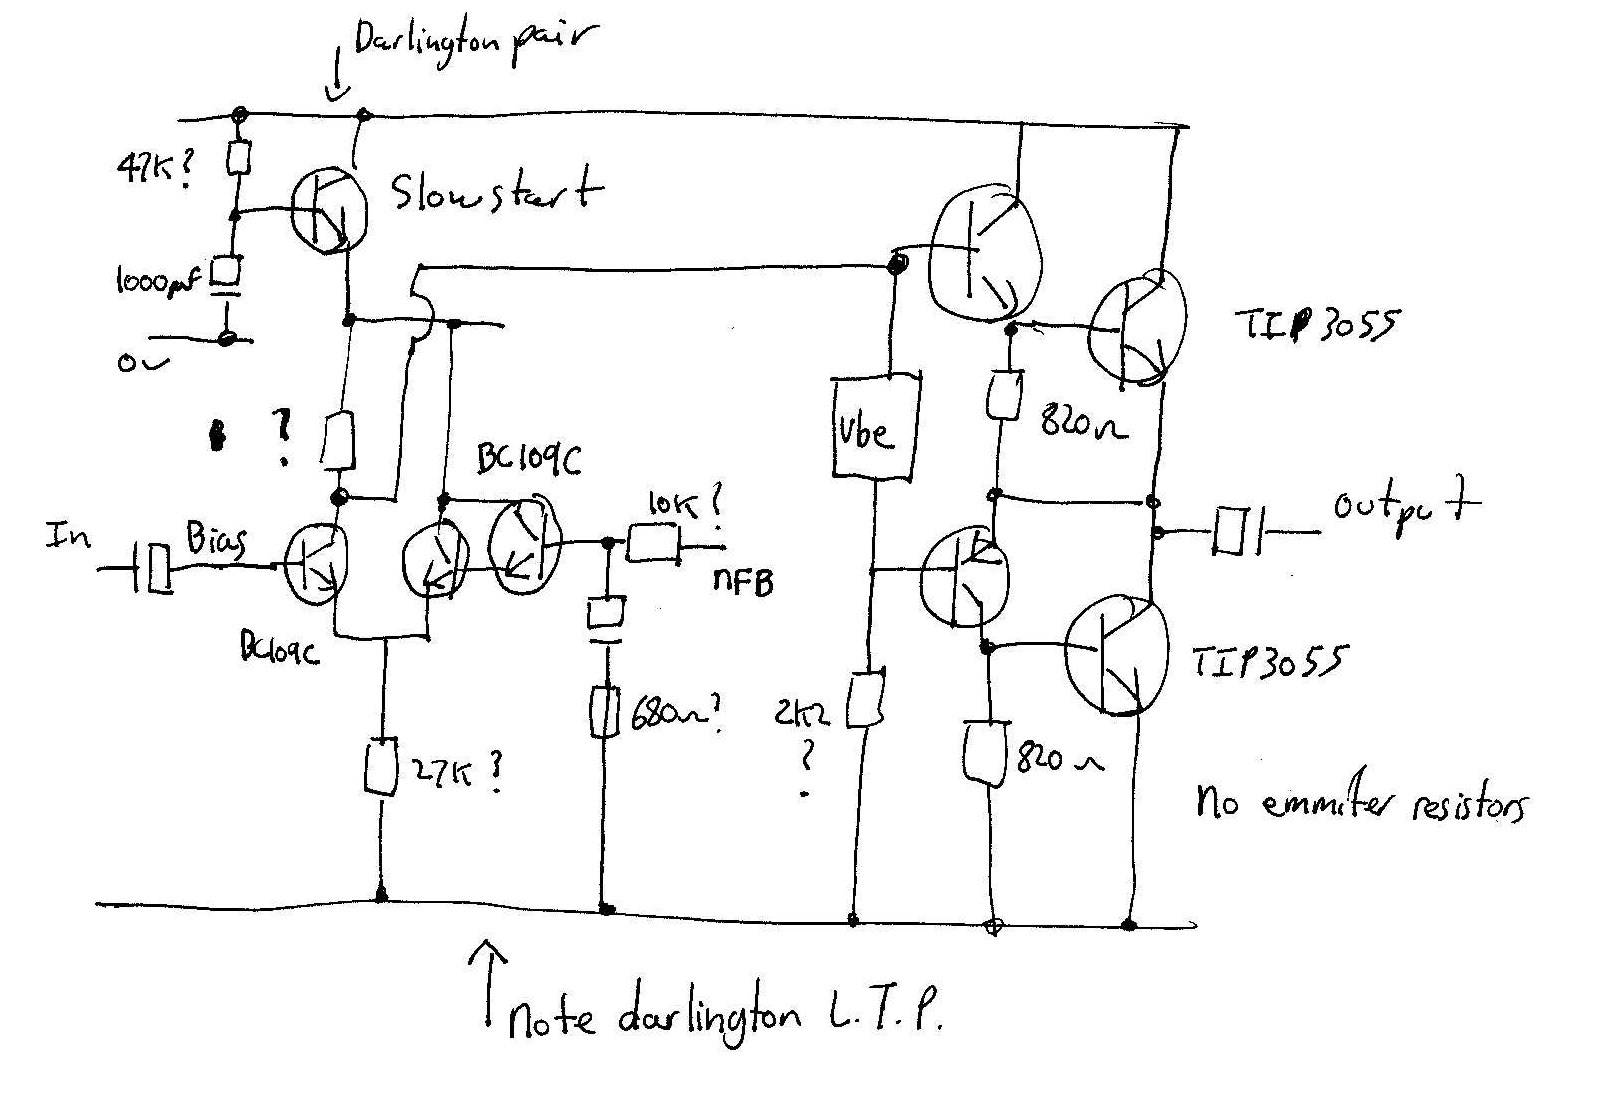 Darlington pair
47K?
Slow start
1000µf
0v
?
TIP3055
Vbe
820Ω
BC109C
10K?
output
In
Bias
nFB
BC109C
680Ω?
2K2
?
TIP3055
27K?
820Ω
No emmiter resistors
Note darlington L.T.P.